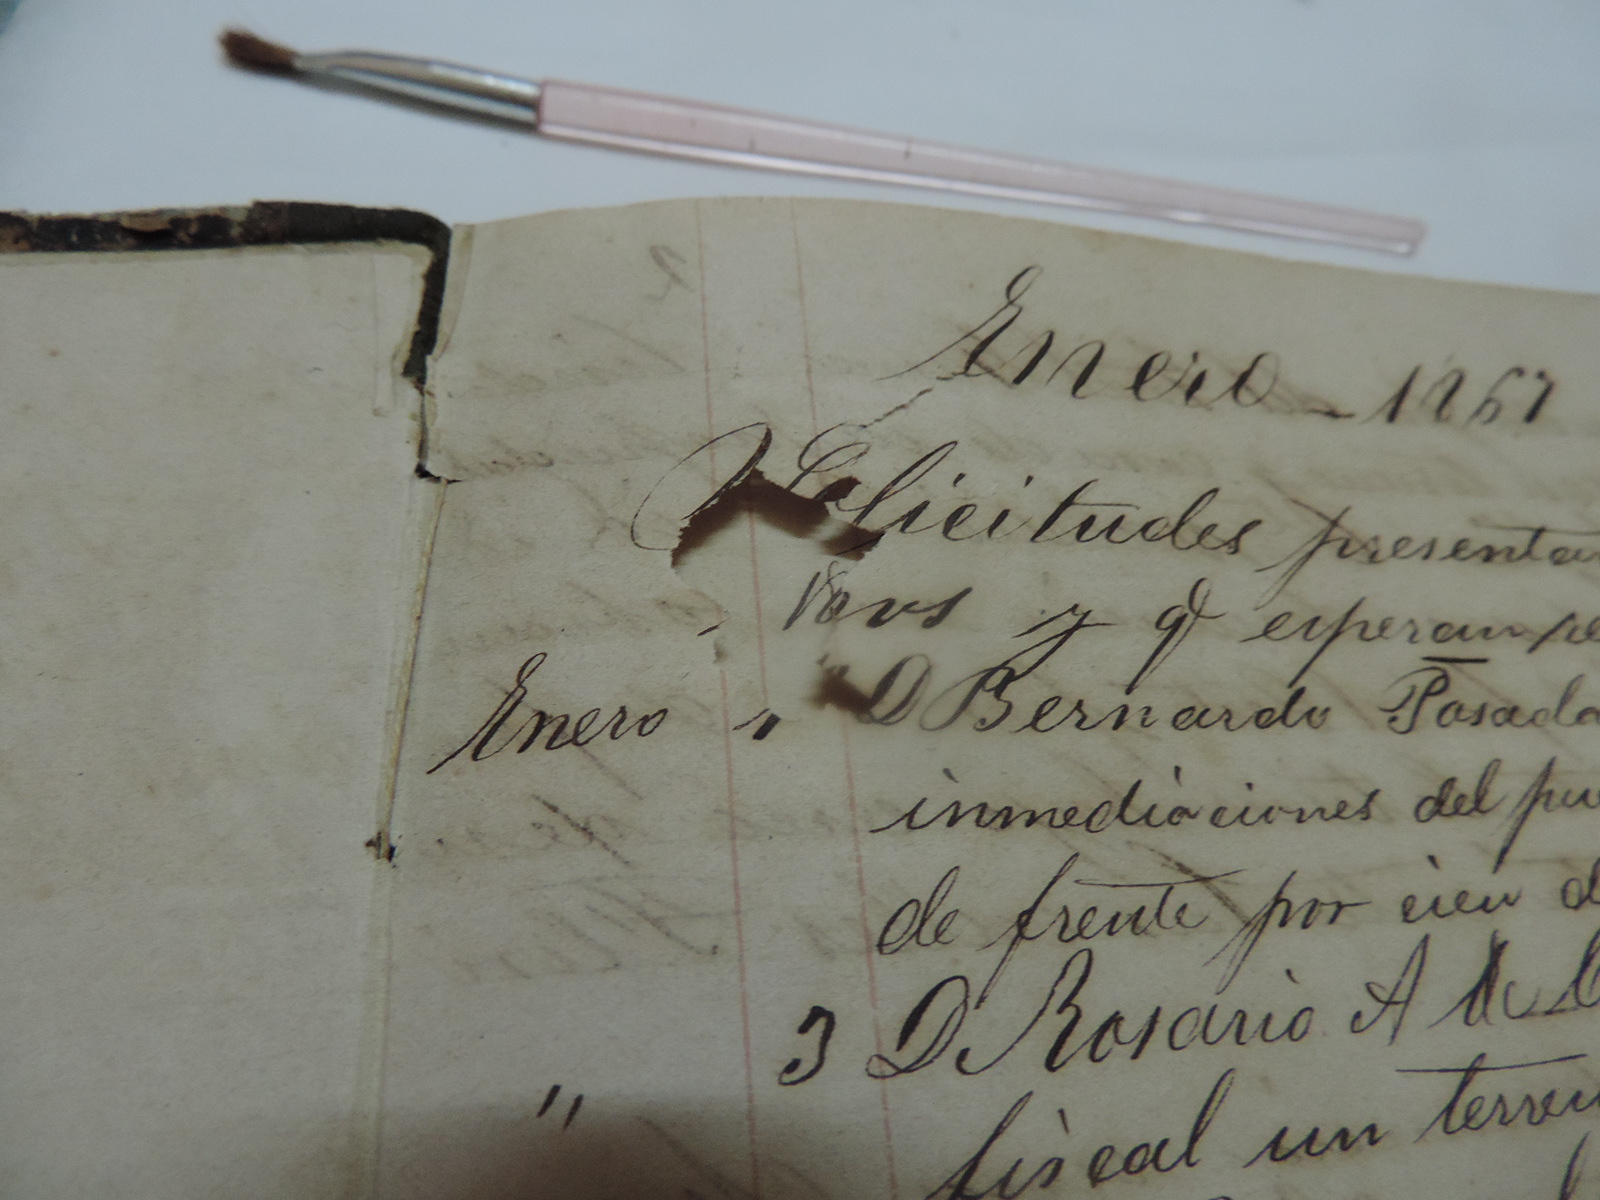 Enero - 1867
Solicitudes presenta
y qe esperan
Enero " D Bernardo Posada
inmediaciones del pu
de frente por cien d
3 D Rosario A de
" fiscal un terren